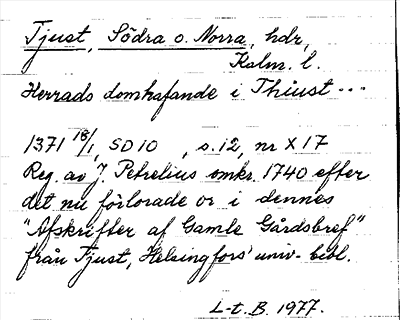 Tjust, Södra o. Norra, hdr,
Kalm. l.
Herrads domhafande i Thiust ...
1371 18/1, SD 10 , s. 12, nr X 17
Reg. av J. Petrelius omkr. 1740 efter
det nu förlorade or i dennes
"Afskrifter af Gamle Gårdsbref"
från Tjust, Helsingfors' univ-bibl.
L-t. B. 1977.